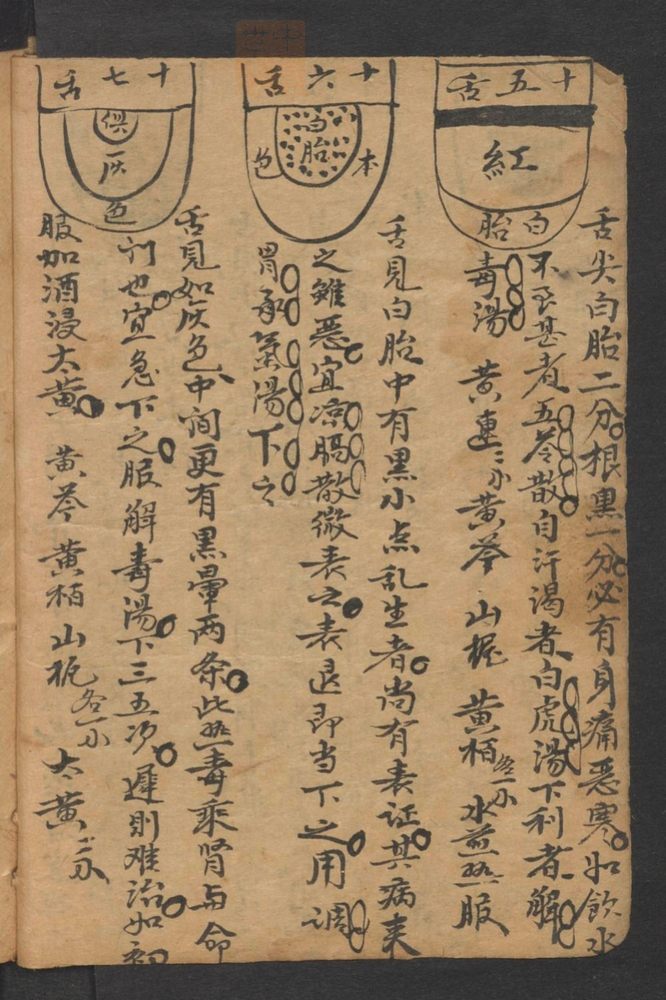 十五舌
紅
白胎
舌尖白胎二分根黑一分必有身痛恶寒如飲水
不至甚者五苓散自汗渴者白虎湯下利者解
毒湯 黄連二小黄芩 山栀 黄栢各一小 水煎热服
十六舌
白胎
本色
舌見白胎中有黑小点乱生者尚有表证其病来
之雖惡宜凉膈散微表之表退即当下之用調
胃承氣湯下之
十七舌
俱
灰
色
舌見如灰色中间更有黑暈两条此热毒乘肾与命
门也宜急下之服解毒湯下三五次遲則难治如初
服加酒浸大黄 黄芩 黄栢 山栀各一小 大黄